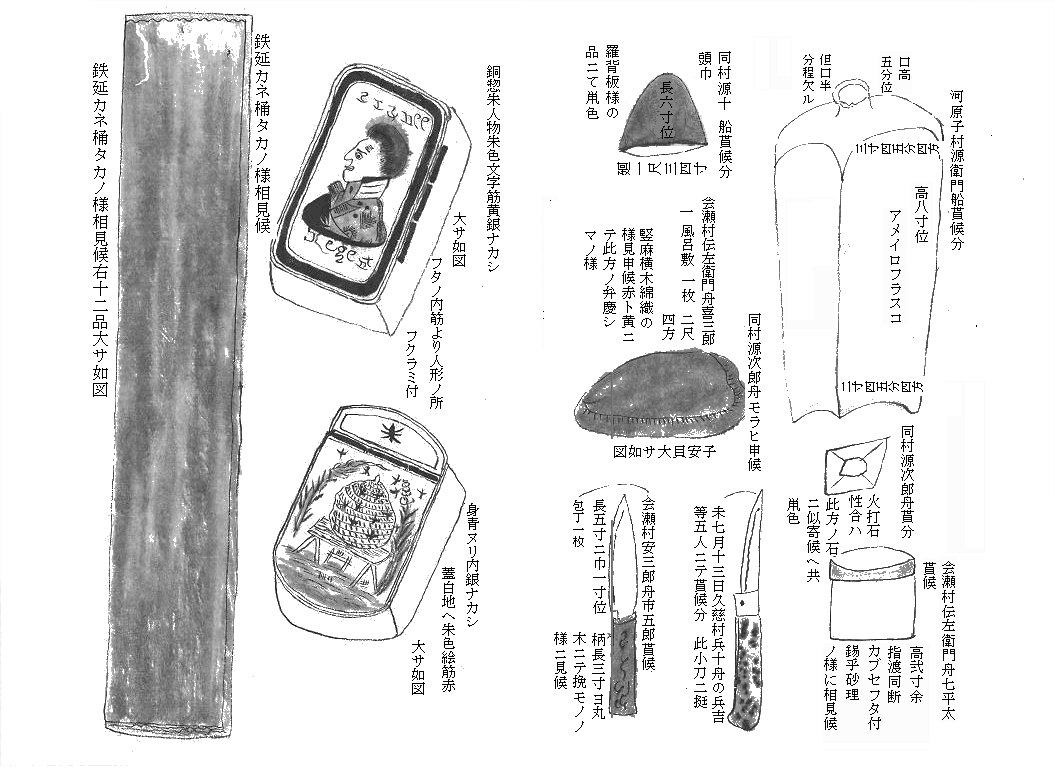 河原子村源衛門船貰候分
口高
五分位
但口半
分程欠ル
高八寸位
アメイロフラスコ
三寸四五分四方
三寸四五分四方
同村源十 船貰候分
頭巾
長六寸位
羅背板様の
品ニて鼡色
会瀬村伝左衛門舟喜三郎
一風呂敷 一枚 二尺
四方
竪麻横木綿織の
様見申候赤ト黄ニ
テ此方ノ弁慶シ
マノ様
同村源次郎舟モラヒ申候
図如サ大貝安子
同村源次郎舟貰分
火打石
性合ハ
此方ノ石
ニ似寄候へ共
鼡色
会瀬村伝左衛門舟七平太
貰候
高弐寸余
指渡同断
カブセフタ付
錫乎砂理
ノ様に相見候
未七月十三日久慈村兵十舟の兵吉
等五人ニテ貰候分 此小刀二挺
会瀬村安三郎舟市五郎貰候
長五寸ニ巾一寸位
包丁一枚
柄長三寸ヨ丸
木ニテ挽モノノ
様ニ見候
銅惣朱人物朱色文字筋黄銀ナカシ
大サ如図
フタノ内筋より人形ノ所
フクラミ付
身青ヌリ内銀ナカシ
蓋白地へ朱色絵筋赤
大サ如図
鉄延カネ桶タカノ様相見候
鉄延カネ桶タカノ様相見候右十二品大サ如図